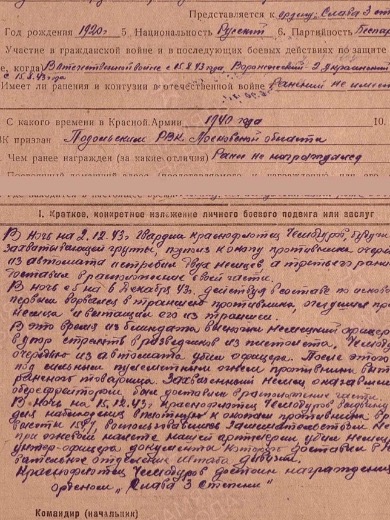 Представляется к ордену: Слава 3 ст
Год рождения 1920г 5. Национальность Русский 6. Партийность Беспар
Участие в гражданской войне и последующих боевых действиях по защите
е, когда) В Отечественной войне с 15.8.43 года, Воронежский - 2 Украинский
с 15.8.43 года
Имеет ли ранения и контузии в отечественной войне Ранений не имеет
С какого времени в Красной Армии 1940 года 10.
ВК призван Подольским РВК Московской области
Чем ранее награжден (за какие отличия) Ранее не награжден
I. Краткое, конкретное изложение личного боевого подвига или заслуг
В ночь на 2.12.43г гвардии красноармеец Чембуров, будучи
захватывающей группы, подполз к окопу противника, очере
из автомата истребил двух немцев, а третьего ране
доставил в расположение своей части.
В ночь с 5 на 6 декабря 43г. действуя в составе
первым ворвался в траншеи противника, оглушил пр
немца и вытащил его из траншеи.
В это время из блиндажа выскочил немецкий офицер
в упор стрелять в разведчиков из пистолета. Чембу
очередью из автомата убил офицера. После этого
под сильным пулеметным огнем противника вын
раненого товарища. Захваченный немец оказавший
обер-ефрейтором, был доставлен в расположение части
В ночь на 15.12.43г красноармеец Чембуров,
для наблюдения вплотную к окопам противника в р
высоты воспользовавшись замешательством не
при огневом налете нашей артиллерии убил немец
унтер-офицера, документы которого доставил в
отделение штаба дивизии.
Красноармеец Чембуров достоин награждения
орденом „Слава 3 степени"
Командир (начальник)